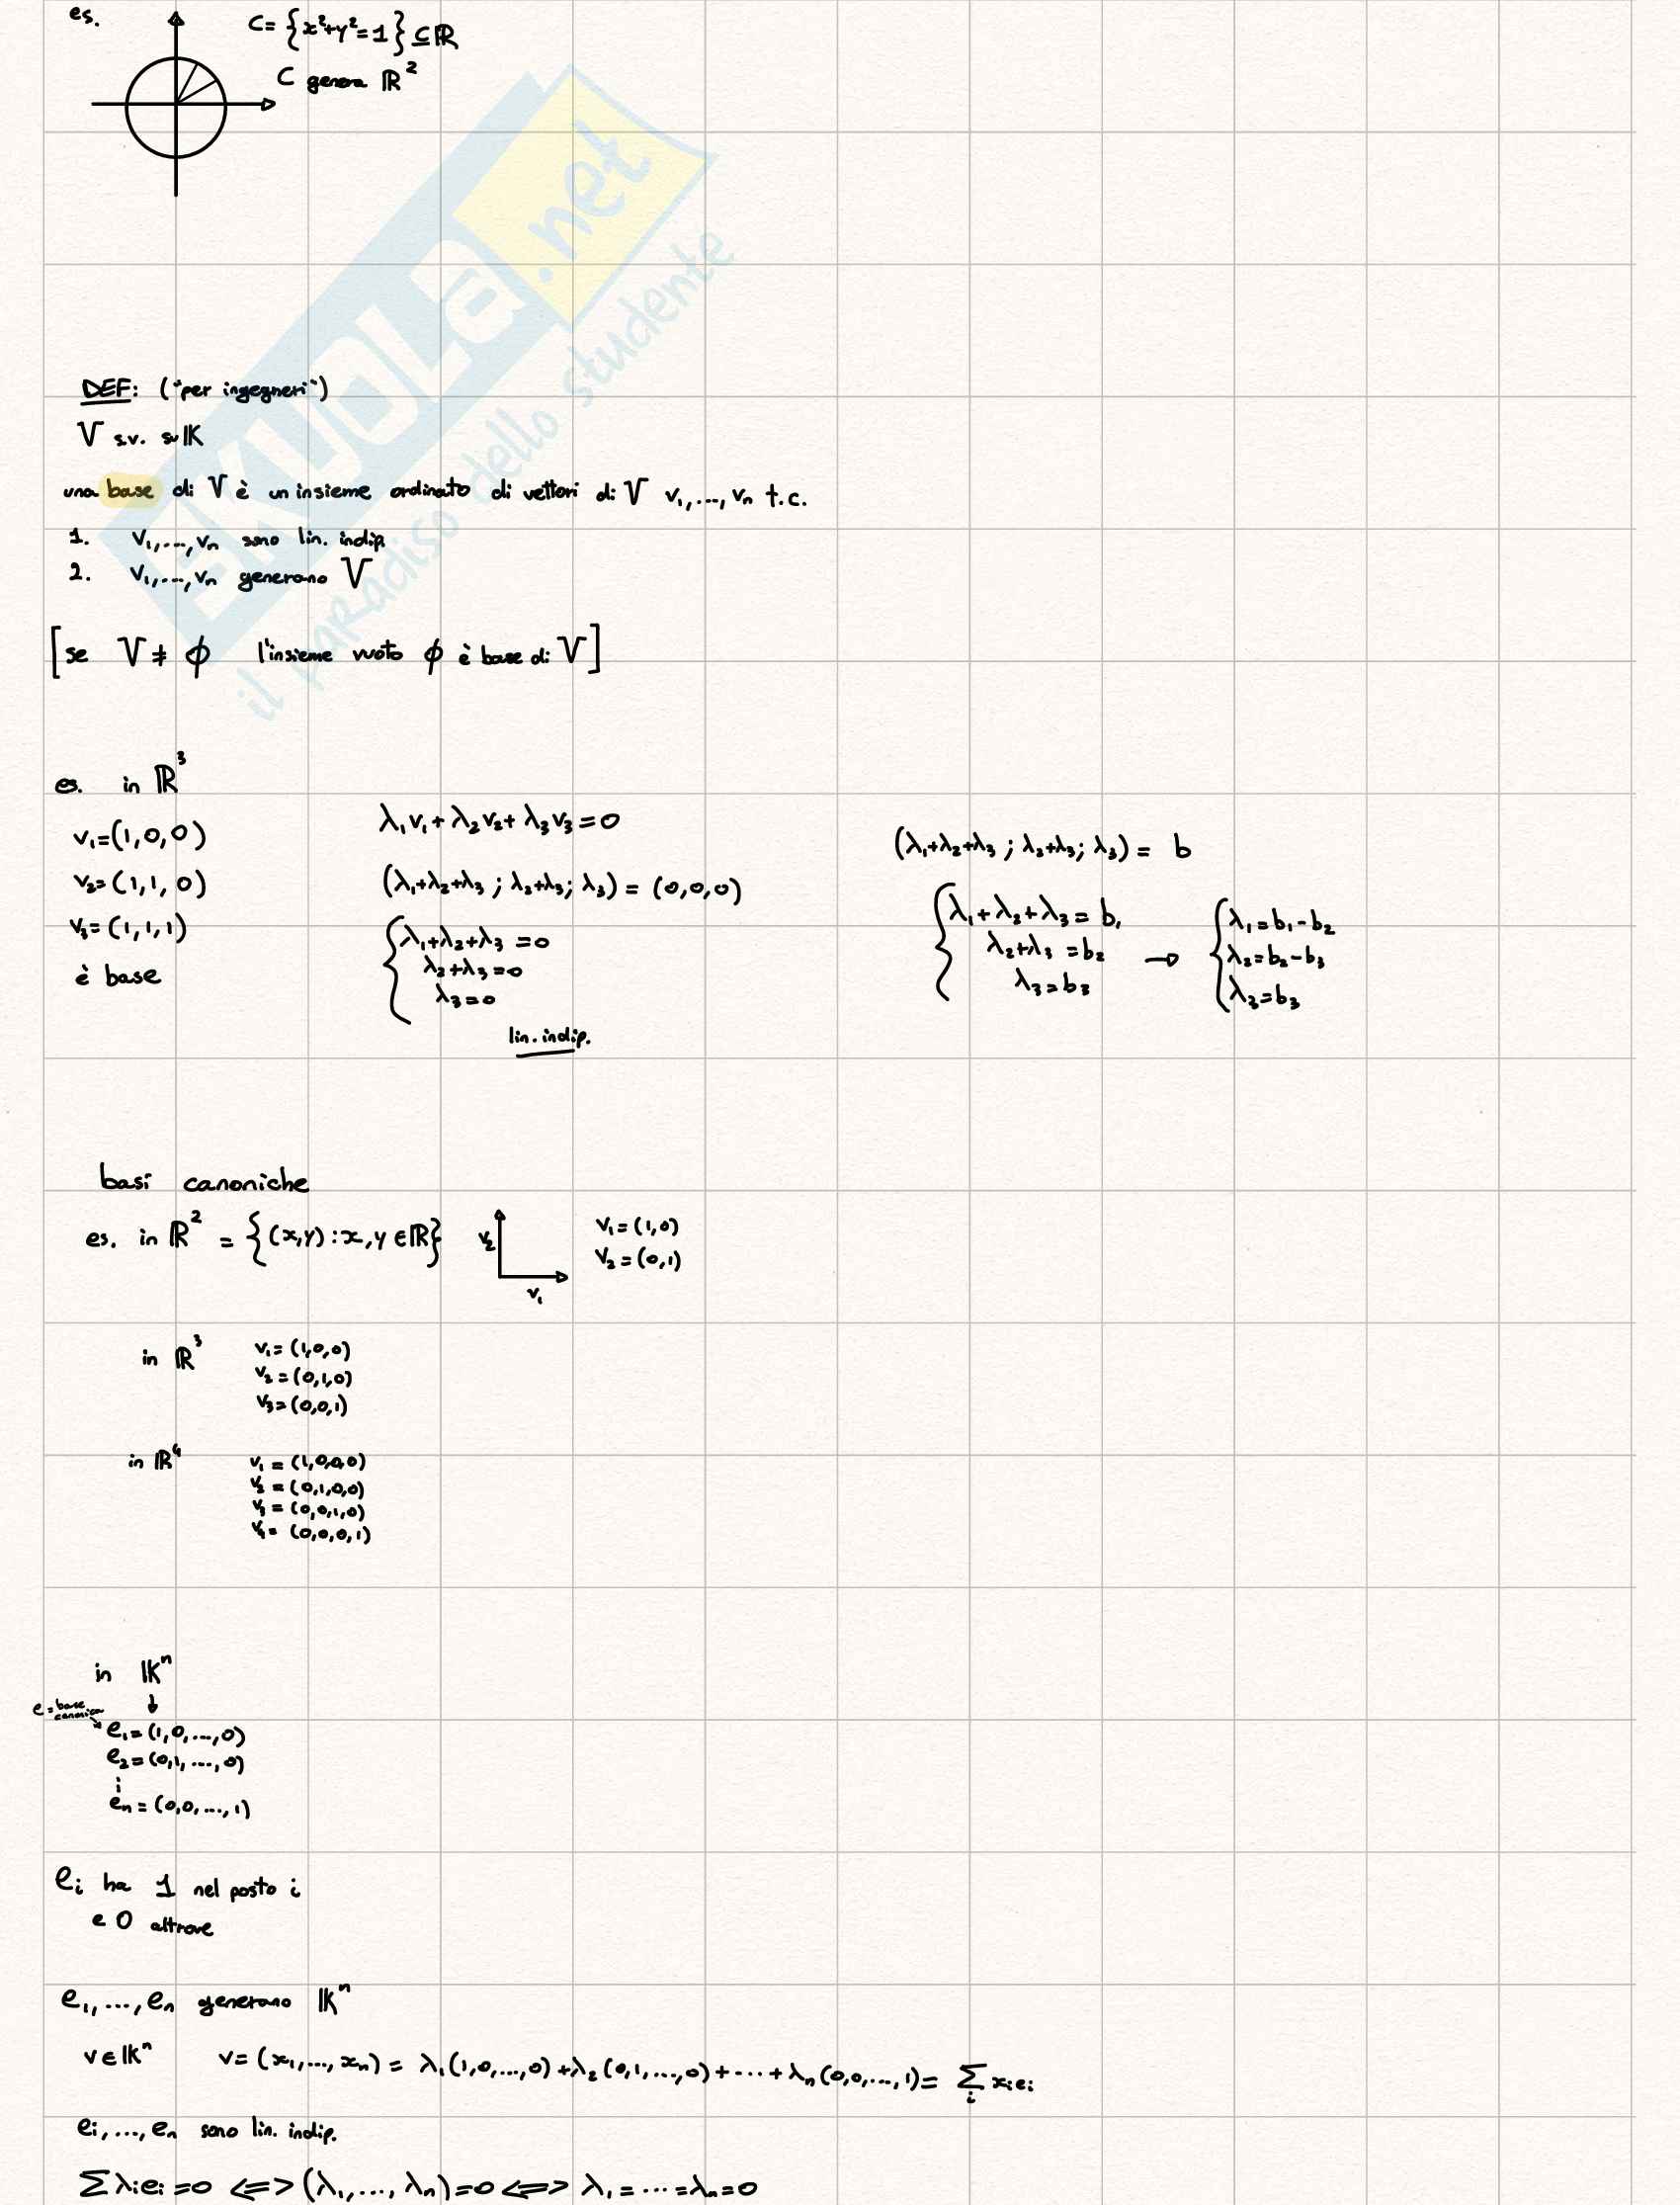 es.
C= {x²+y²=1} ⊆ ℝ
C genera ℝ²
SKUOLa.net
il paradiso dello studente
DEF: ("per ingegneri")
V s.v. su 𝕂
una base di V è un insieme ordinato di vettori di V v₁,...,vₙ t.c.
1. v₁,...,vₙ sono lin. indip.
2. v₁,...,vₙ generano V
[se V ≠ ϕ l'insieme vuoto ϕ è base di V]
es. in ℝ³
v₁=(1,0,0)
v₂=(1,1,0)
v₃=(1,1,1)
è base
λ₁v₁+λ₂v₂+λ₃v₃=0
(λ₁+λ₂+λ₃ ; λ₂+λ₃; λ₃) = (0,0,0)
{λ₁+λ₂+λ₃ =0
λ₂+λ₃=0
λ₃=0
lin. indip.
(λ₁+λ₂+λ₃ ; λ₂+λ₃; λ₃) = b
{λ₁+λ₂+λ₃= b₁
λ₂+λ₃ =b₂
λ₃=b₃
→
{λ₁=b₁-b₂
λ₂=b₂-b₃
λ₃=b₃
basi canoniche
es. in ℝ² = {(x,y) : x,y ∈ ℝ}
v₂
v₁
v₁=(1,0)
v₂=(0,1)
in ℝ³
v₁=(1,0,0)
v₂=(0,1,0)
v₃=(0,0,1)
in ℝ⁴
v₁=(1,0,0,0)
v₂=(0,1,0,0)
v₃=(0,0,1,0)
v₄=(0,0,0,1)
in 𝕂ⁿ
↓
e=base canonica
e₁=(1,0,...,0)
e₂=(0,1,...,0)
⋮
eₙ=(0,0,...,1)
eᵢ ha 1 nel posto i
e 0 altrove
e₁,...,eₙ generano 𝕂ⁿ
v∈𝕂ⁿ v=(x₁,...,xₙ) = λ₁(1,0,...,0)+λ₂(0,1,...,0)+···+λₙ(0,0,...,1)= ∑ᵢ xᵢeᵢ
eᵢ,...,eₙ sono lin. indip.
∑λᵢeᵢ=0 ⟺ (λ₁,...,λₙ)=0 ⟺ λ₁=···=λₙ=0